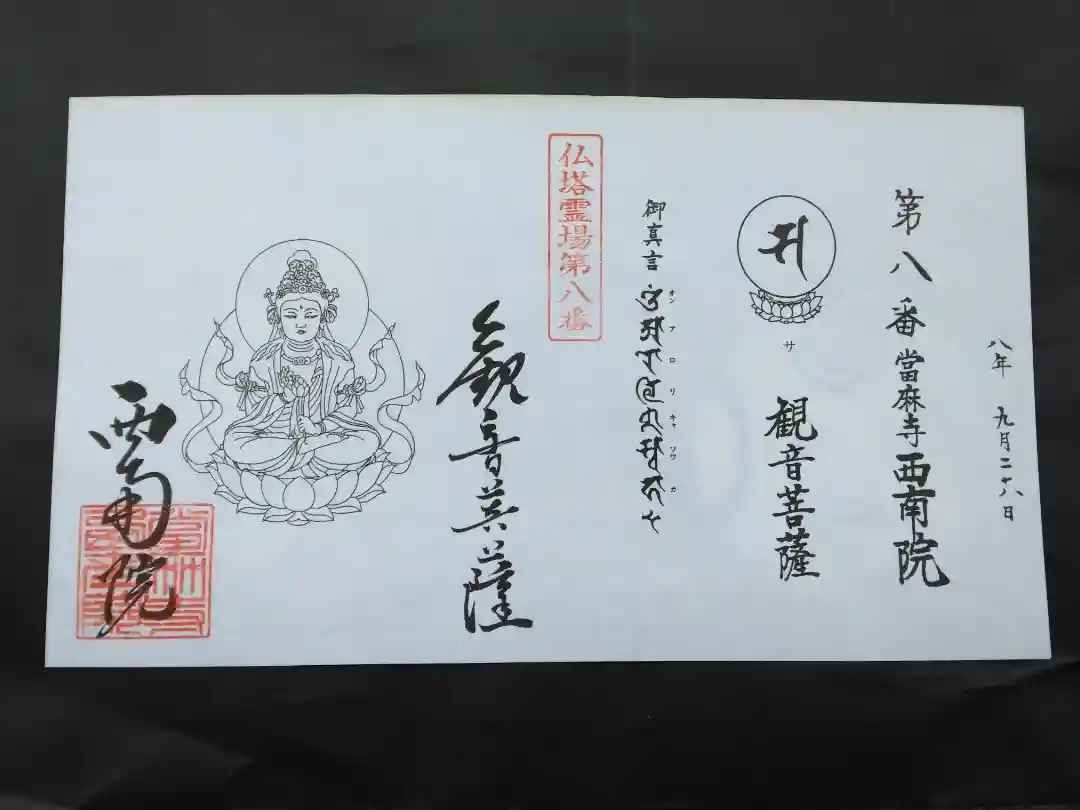 八年 九月二十八日
第八番 當麻寺 西南院
サ
観音菩薩
御真言
オン アロリキャ ソワカ
仏塔霊場第八番
観音菩薩
西南院